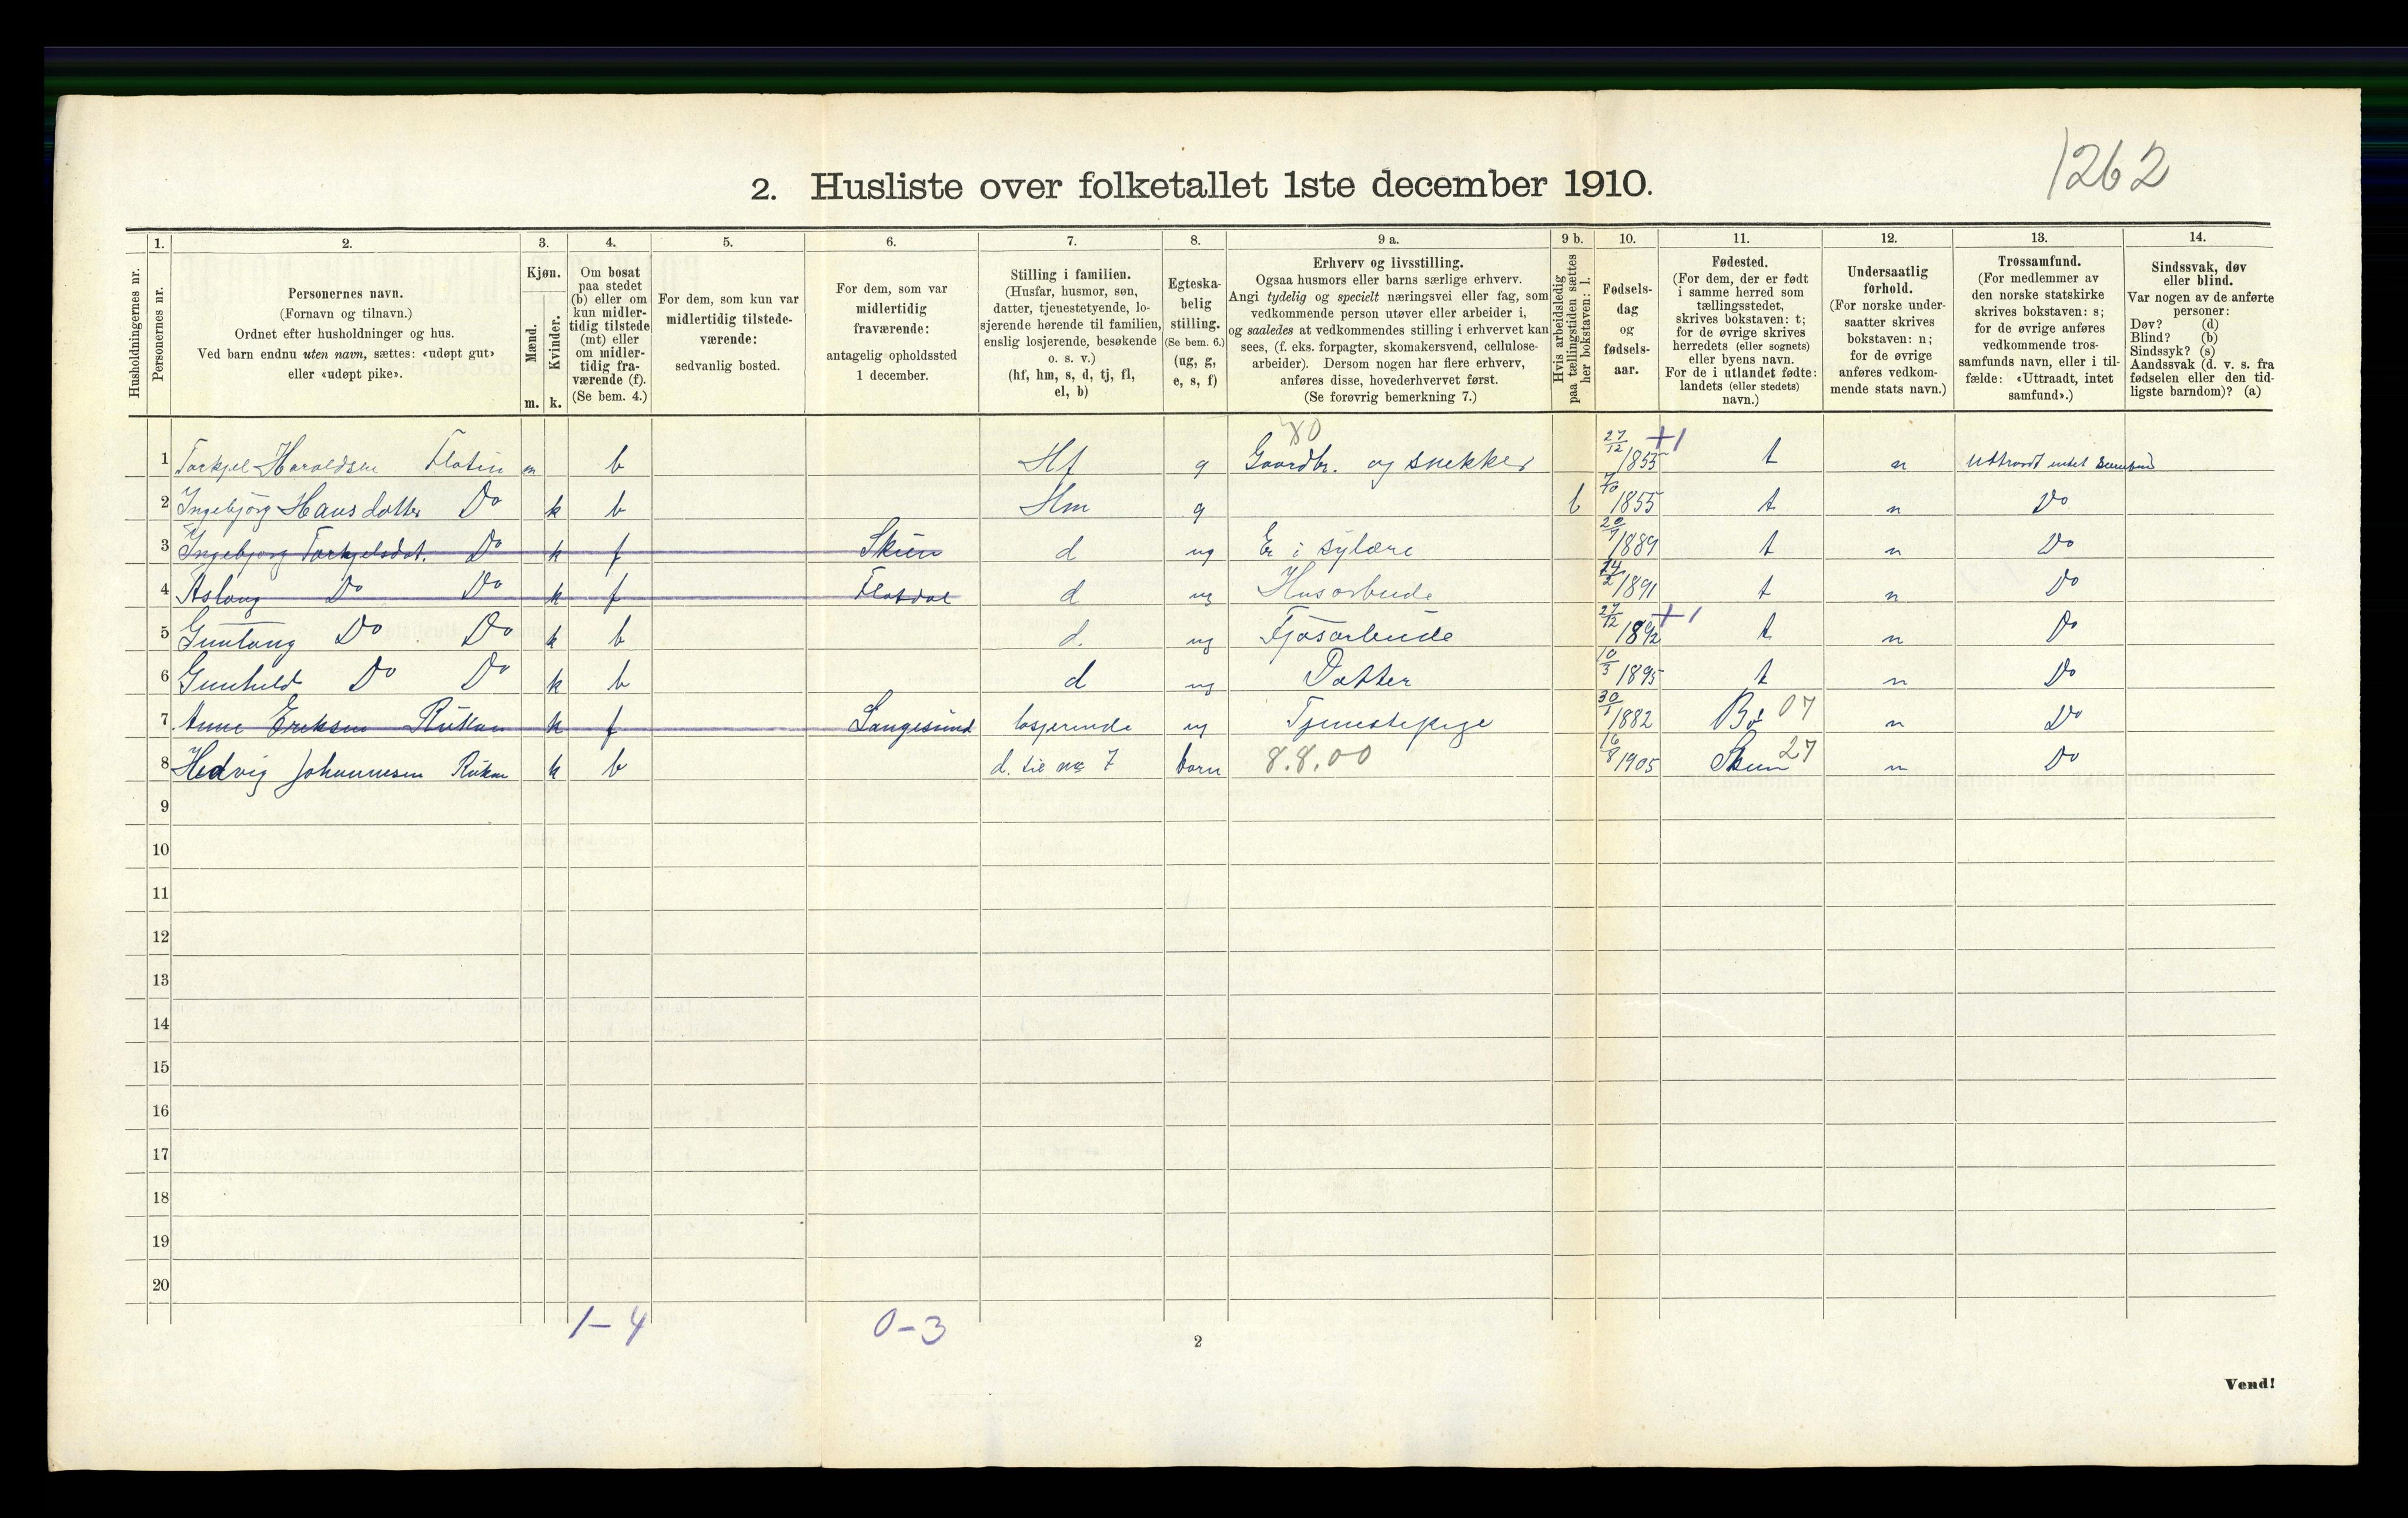 1262
2. Husliste over folketallet 1ste december 1910.
Husholdningernes nr.
1.
Personernes nr.
2.
Personernes navn.
(Fornavn og tilnavn.)
Ordnet efter husholdninger og hus.
Ved barn endnu uten navn, sættes: «udøpt gut»
eller «udøpt pike».
3.
Kjøn.
Mænd.
Kvinder.
m. k.
4.
Om bosat
paa stedet
(b) eller om
kun midler-
tidig tilstede
(mt) eller
om midler-
tidig fra-
værende (f).
(Se bem. 4.)
5.
For dem, som kun var
midlertidig tilstede-
værende:
sedvanlig bosted.
6.
For dem, som var
midlertidig
fraværende:
antagelig opholdssted
1 december.
7.
Stilling i familien.
(Husfar, husmor, søn,
datter, tjenestetyende, lo-
sjerende hørende til familien,
enslig losjerende, besøkende
o. s. v.)
(hf, hm, s, d, tj, fl,
el, b)
8.
Egteska-
belig
stilling.
(Se bem. 6.)
(ug, g,
e, s, f)
9 a.
Erhverv og livsstilling.
Ogsaa husmors eller barns særlige erhverv.
Angi tydelig og specielt næringsvei eller fag, som
vedkommende person utøver eller arbeider i,
og saaledes at vedkommendes stilling i erhvervet kan
sees, (f. eks. forpagter, skomakersvend, cellulose-
arbeider). Dersom nogen har flere erhverv,
anføres disse, hovederhvervet først.
(Se forøvrig bemerkning 7.)
9 b.
Hvis arbeidsledig
paa tællingstiden sættes
her bokstaven: l.
10.
Fødsels-
dag
og
fødsels-
aar.
11.
Fødested.
(For dem, der er født
i samme herred som
tællingsstedet,
skrives bokstaven: t;
for de øvrige skrives
herredets (eller sognets)
eller byens navn.
For de i utlandet fødte:
landets (eller stedets)
navn.)
12.
Undersaatlig
forhold.
(For norske under-
saatter skrives
bokstaven: n;
for de øvrige
anføres vedkom-
mende stats navn.)
13.
Trossamfund.
(For medlemmer av
den norske statskirke
skrives bokstaven: s;
for de øvrige anføres
vedkommende tros-
samfunds navn, eller i til-
fælde: «Uttraadt, intet
samfund».)
14.
Sindssvak, døv
eller blind.
Var nogen av de anførte
personer:
Døv? (d)
Blind? (b)
Sindssyk? (s)
Aandssvak (d. v. s. fra
fødselen eller den tid-
ligste barndom)? (a)
1 Torkjel Haroldsen Flatin m b Hf g Gaardbr. og snekker 27/12 1855 +1 t n Uttraadt intet
2 Ingebjörg Hansdatter Do k b Hm g 1855 t n Do
3 Ingebjorg Torkjelsdat. Do k f Skien d ug Er i sylære 20/7 1889 t n Do
4 Aslaug Do Do k f Flatdal d ug Husarbeide 14/2 1891 t n Do
5 Gunlaug Do Do k b d. ug Fjøsarbeide 27/12 1892 +1 t n Do
6 Gunhild Do Do k b d ug Datter 10/3 1895 t n Do
7 Anne Eriksen Rukan k f Langesund losjerende ug Tjenestepige 1882 Bø 07 n Do
8 Hedvig Johannesen Rukan k b d. til no 7 barn 8.8.00 16/8 1905 Skien 27 n Do
9
10
11
12
13
14
15
16
17
18
19
20
1–4 0–3
2
Vend!